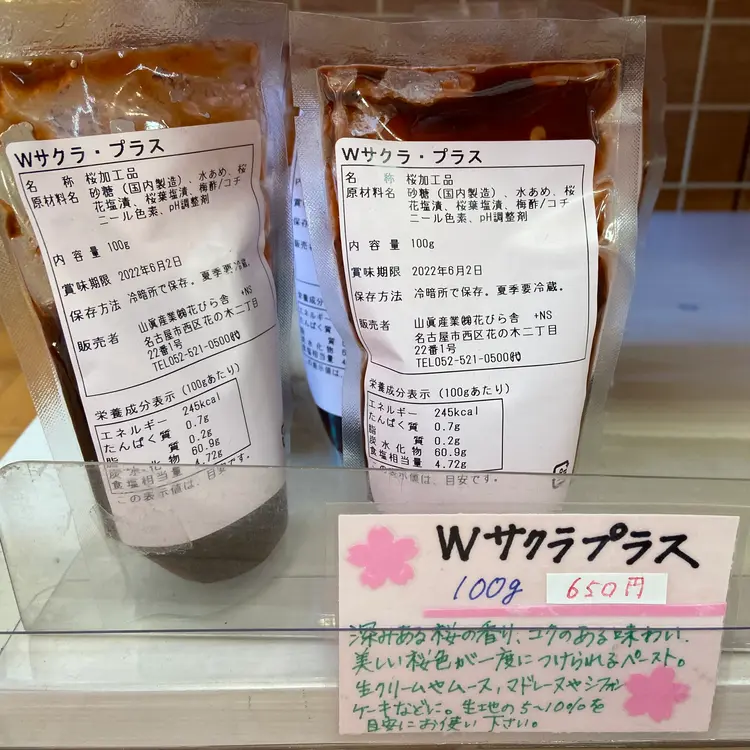 Wサクラ・プラス
名　称　桜加工品
原材料名　砂糖（国内製造）、水あめ、桜
花塩漬、桜葉塩漬、梅酢/コチ
ニール色素、pH調整剤
内容量　100g
賞味期限　2022年6月2日
保存方法　冷暗所で保存。夏季要冷蔵。
販売者　山眞産業㈱花びら舎　+NS
名古屋市西区花の木二丁目
22番1号
TEL052-521-0500㈹
栄養成分表示（100gあたり）
エネルギー　245kcal
たんぱく質　0.7g
脂　質　0.2g
炭水化物　60.9g
食塩相当量　4.72g
この表示値は、目安です。
Wサクラ・プラス
名　称　桜加工品
原材料名　砂糖（国内製造）、水あめ、桜
花塩漬、桜葉塩漬、梅酢/コチ
ニール色素、pH調整剤
内容量　100g
賞味期限　2022年6月2日
保存方法　冷暗所で保存。夏季要冷蔵。
販売者　山眞産業㈱花びら舎　+NS
名古屋市西区花の木二丁目
22番1号
TEL052-521-0500㈹
栄養成分表示（100gあたり）
エネルギー　245kcal
たんぱく質　0.7g
脂　質　0.2g
炭水化物　60.9g
食塩相当量　4.72g
この表示値は、目安です。
Wサクラプラス
100g　650円
深みある桜の香り、コクのある味わい、
美しい桜色が一度につけられるペースト。
生クリームやムース、マドレーヌやシフォン
ケーキなどに。生地の5〜10%を
目安にお使い下さい。